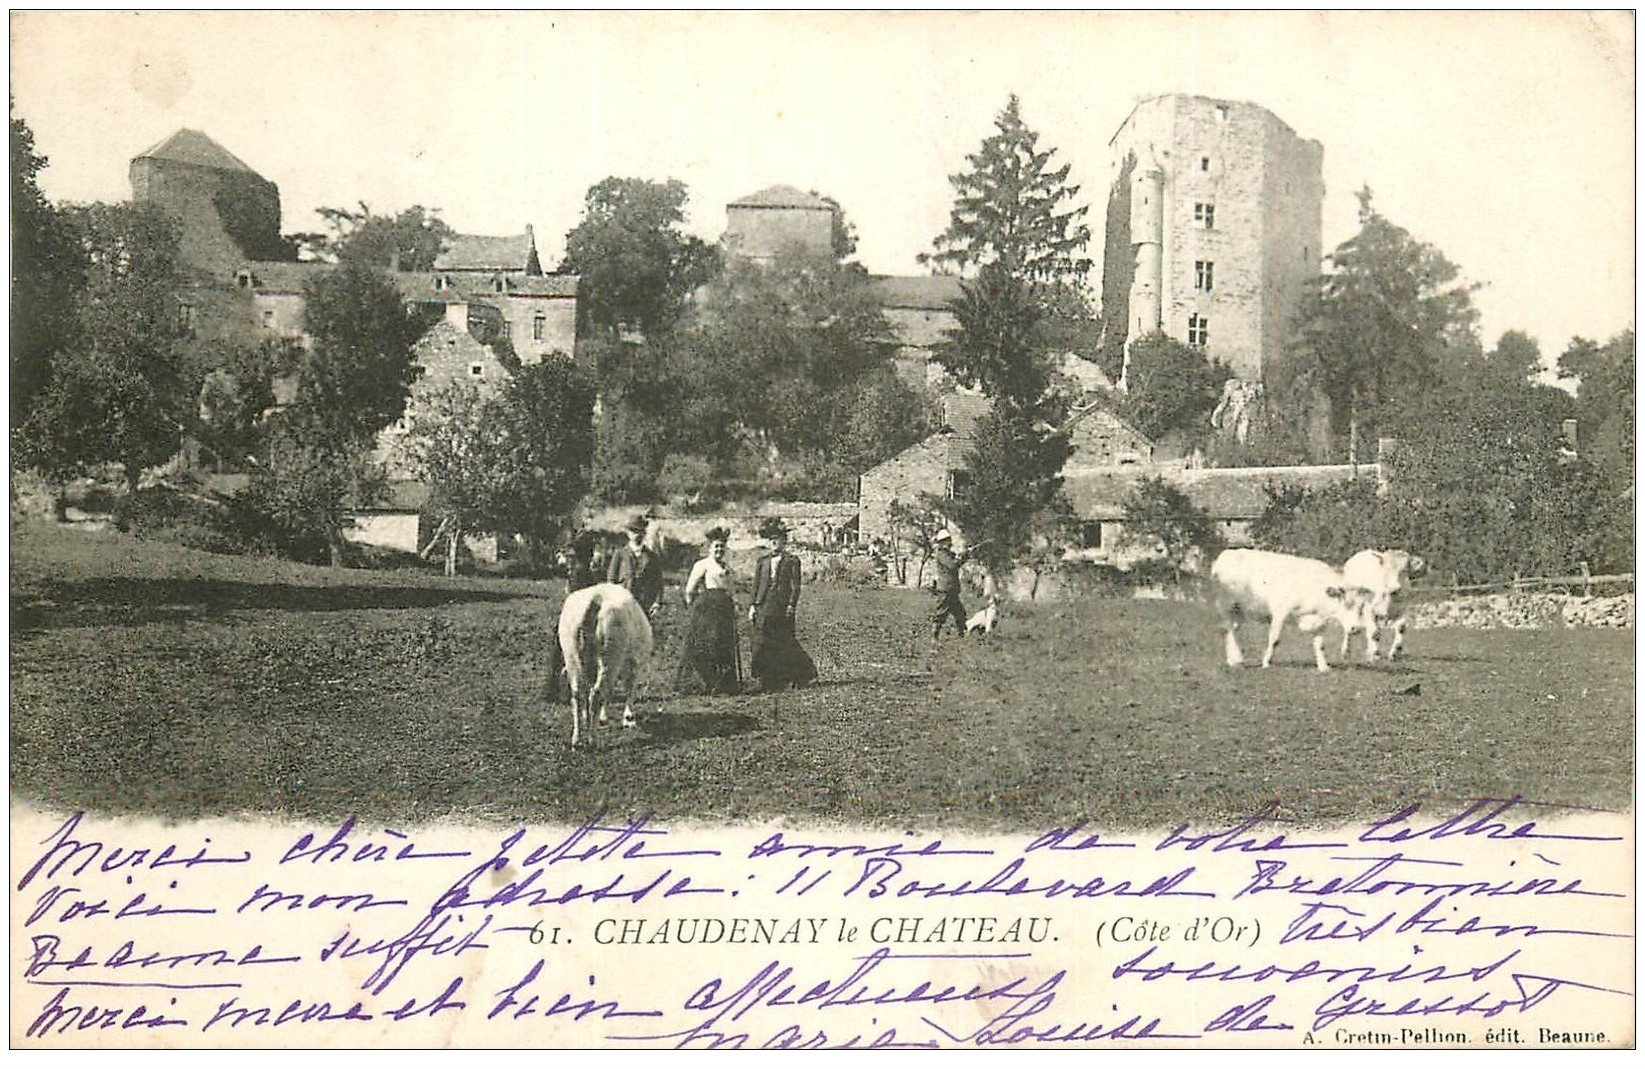 Merci chère petite amie de votre lettre
Voici mon adresse : 11 Boulevard Bretonnière
Beaune suffit très bien
61. CHAUDENAY le CHATEAU. (Côte d'Or)
Merci encore et bien affectueux souvenirs
Marie Louise de Gressot
A. Cretin-Pellion. édit. Beaune.